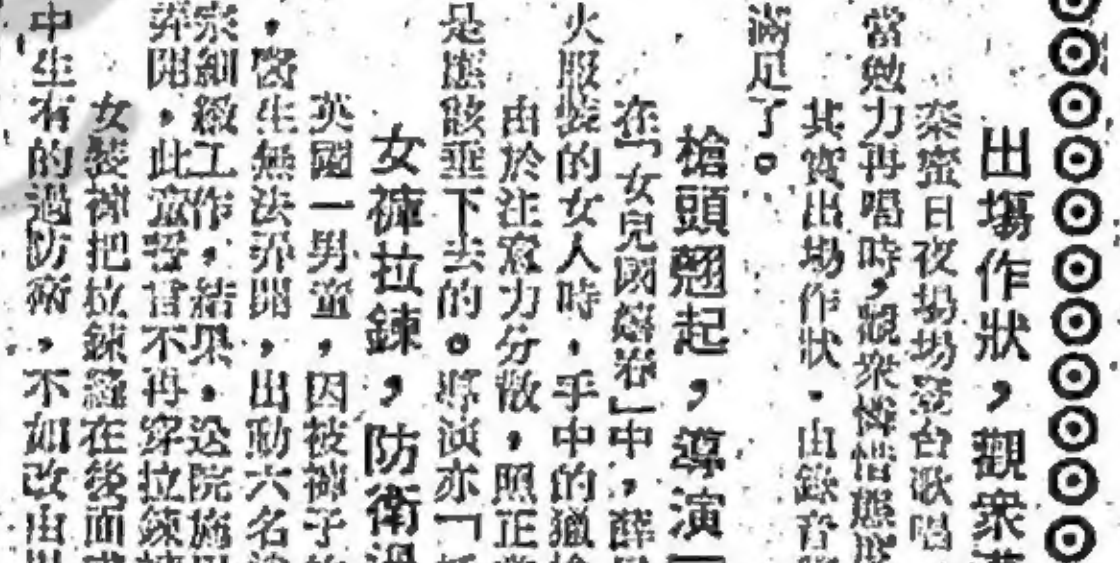 出場作狀，觀衆
奈蜜日夜場場登台歌唱
當勉力再唱時，觀衆憐惜態度
其實出場作狀，由錄音
滿足了。
槍頭翹起，導演
在「女兒國 」中，薛
火服裝的女人時，手中的獵槍
由於注意力分散，照正常
是應該垂下去的。導演亦「
女褲拉鍊，防衛過
英國一男童，因被褲子的
，醫生無法弄開，出動六名
來細緻工作，結果，送院施用
弄開，此童誓言不再穿拉鍊褲
女裝褲把拉鍊 在後面或
中生有的過防衛，不如改由